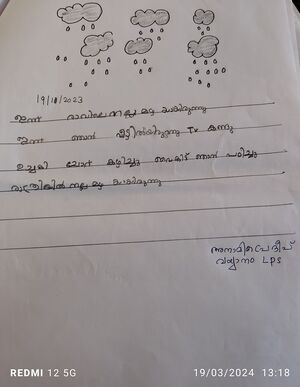 19/10/2023
ഇന്ന് രാവിലെ നല്ല മഴ ആയിരുന്നു
ഇന്ന് ഞാൻ വീട്ടിൽ TV കണ്ടു
ഉച്ചക്ക് ചോറ് കഴിച്ചു വൈകിട്ട് ഞാൻ പഠിച്ചു
രാത്രിയിൽ നല്ല മഴ ആയിരുന്നു
അനാമിക പ്രദീപ്
LPS
REDMI 12 5G
19/03/2024 13:18